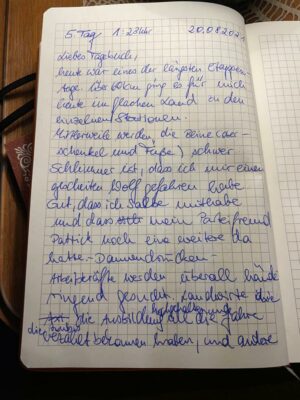 5. Tag 1:23 Uhr 20.08.2021
Liebes Tagebuch,
heute war eines der längsten Etappen-
tage. Über 60 km ging es für mich
heute im flachen Land zu den
einzelnen Stationen.
Mittlerweile werden die Beine (
schenkel und Füße) schwer
Schlimmer ist, dass ich mir einen
gscheiten Wolf gefahren habe
Gut, dass ich Salbe mithabe
und dass mein Parteifreund
Patrick noch eine weitere da
hatte. - Daumendrücken -
Arbeitskräfte werden überall hände
ringend gesucht. Landwirte die
die Ausbildung all die Jahre
bezahlt bekommen haben, und andere